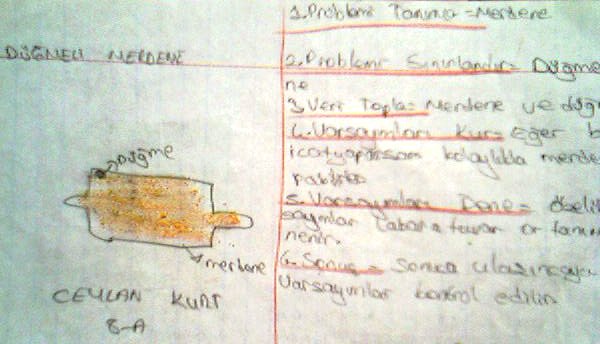 DÜĞMELİ MERDENE
Düğme
merdene
CEYLAN KURT
8-A
1. Problemi Tanıma = Merdene
2. Problemi Sınırlandır = Düğme
ne
3. Veri Topla = Merdene ve düğ
4. Varsayımları Kur = Eğer b
icat yaparsam kolaylıkla merde
5. Varsayımları Dene =
sayımlar
nenir.
6. Sonuç = Sonuca ulaşıncaya
Varsayımlar kontrol edilir